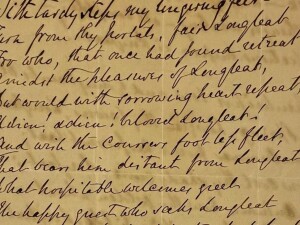 With tardy steps my lingering feet
turn from thy portals, fair Longleat
For who, that once had found retreat
amidst the pleasures of Longleat,
but would with sorrowing heart repeat,
Adieu! adieu! beloved Longleat!
And with the coursers foot less fleet,
That bears him distant from Longleat
What hospitable welcomes greet
The happy guest who seeks Longleat